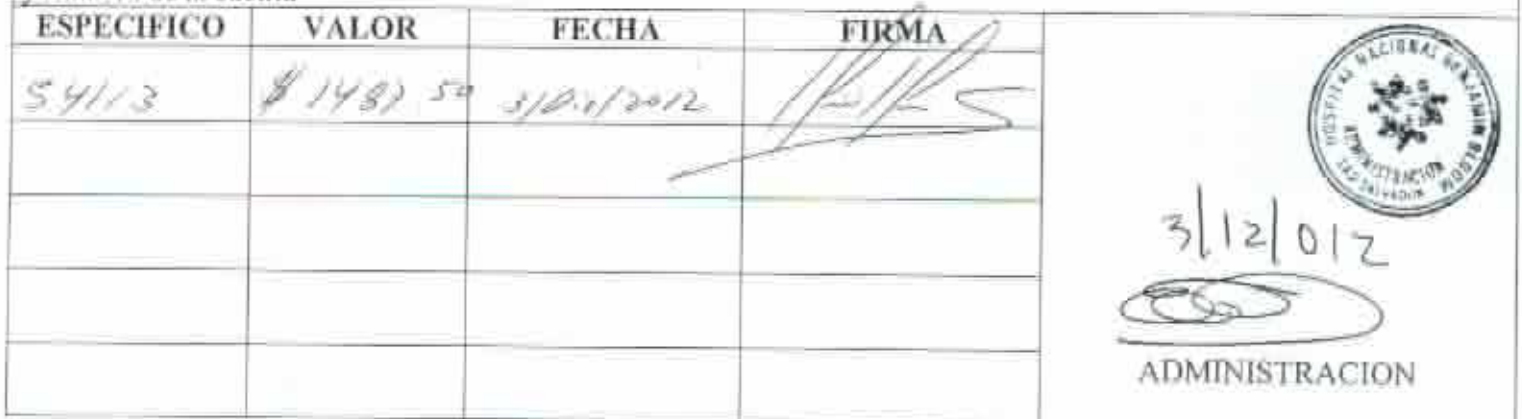 ESPECIFICO VALOR FECHA FIRMA
54113 $ 1487 50 3/Dic/2012
HOSPITAL NACIONAL BENJAMIN BLOOM
ADMINISTRACION
SAN SALVADOR
3/12/012
ADMINISTRACION